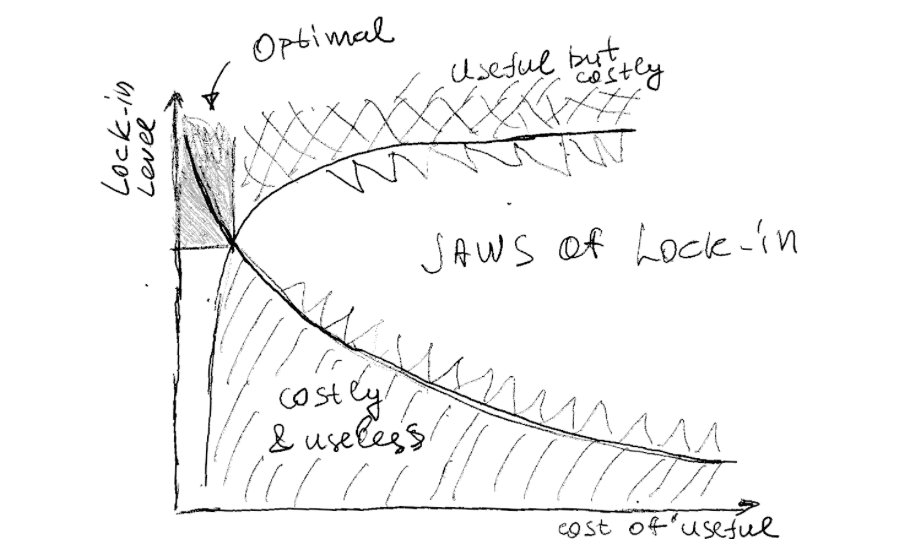 Optimal
Useful but
costly
Lock-in
Level
JAWS of Lock-in
costly
& useless
cost of "useful